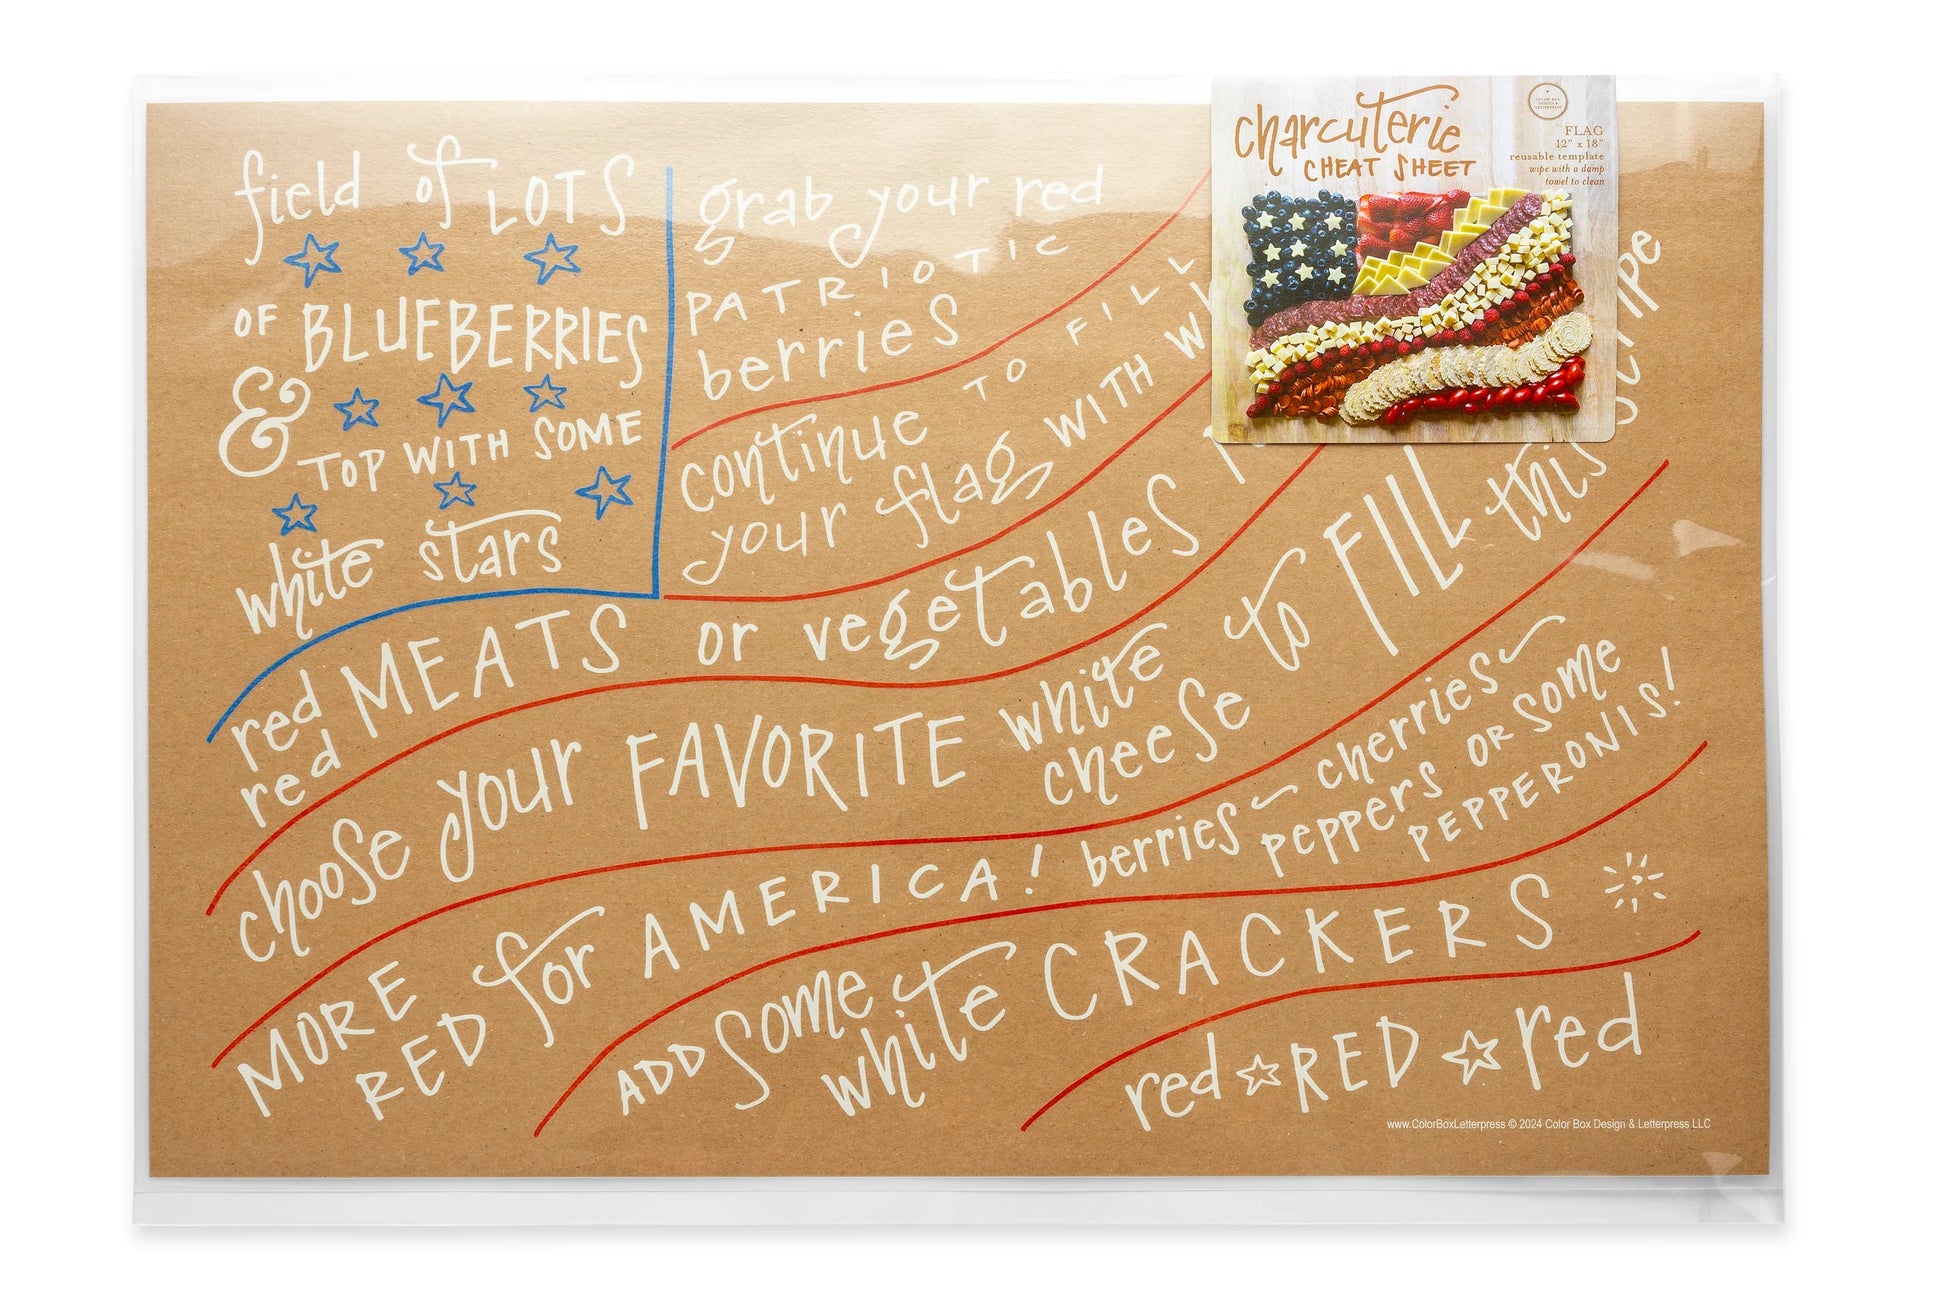 field of LOTS
OF BLUEBERRIES
& TOP WITH SOME
white stars
grab your red
PATRIOTIC
berries
continue TO FILL
your flag WITH
red MEATS or vegetables
red
choose your FAVORITE white cheese to FILL this
MORE RED for AMERICA! berries ~ cherries ~
peppers OR SOME
PEPPERONIS!
ADD some white CRACKERS
red RED red
www.ColorBoxLetterpress © 2024 Color Box Design & Letterpress LLC
charcuterie
CHEAT SHEET
COLOR BOX
DESIGN &
LETTERPRESS
FLAG
12" x 18"
reusable template
wipe with a damp
towel to clean